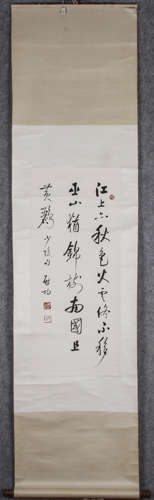 江上亦秋色火雲終不移
巫山猶錦樹南國且
黄鸝少陵句啟功